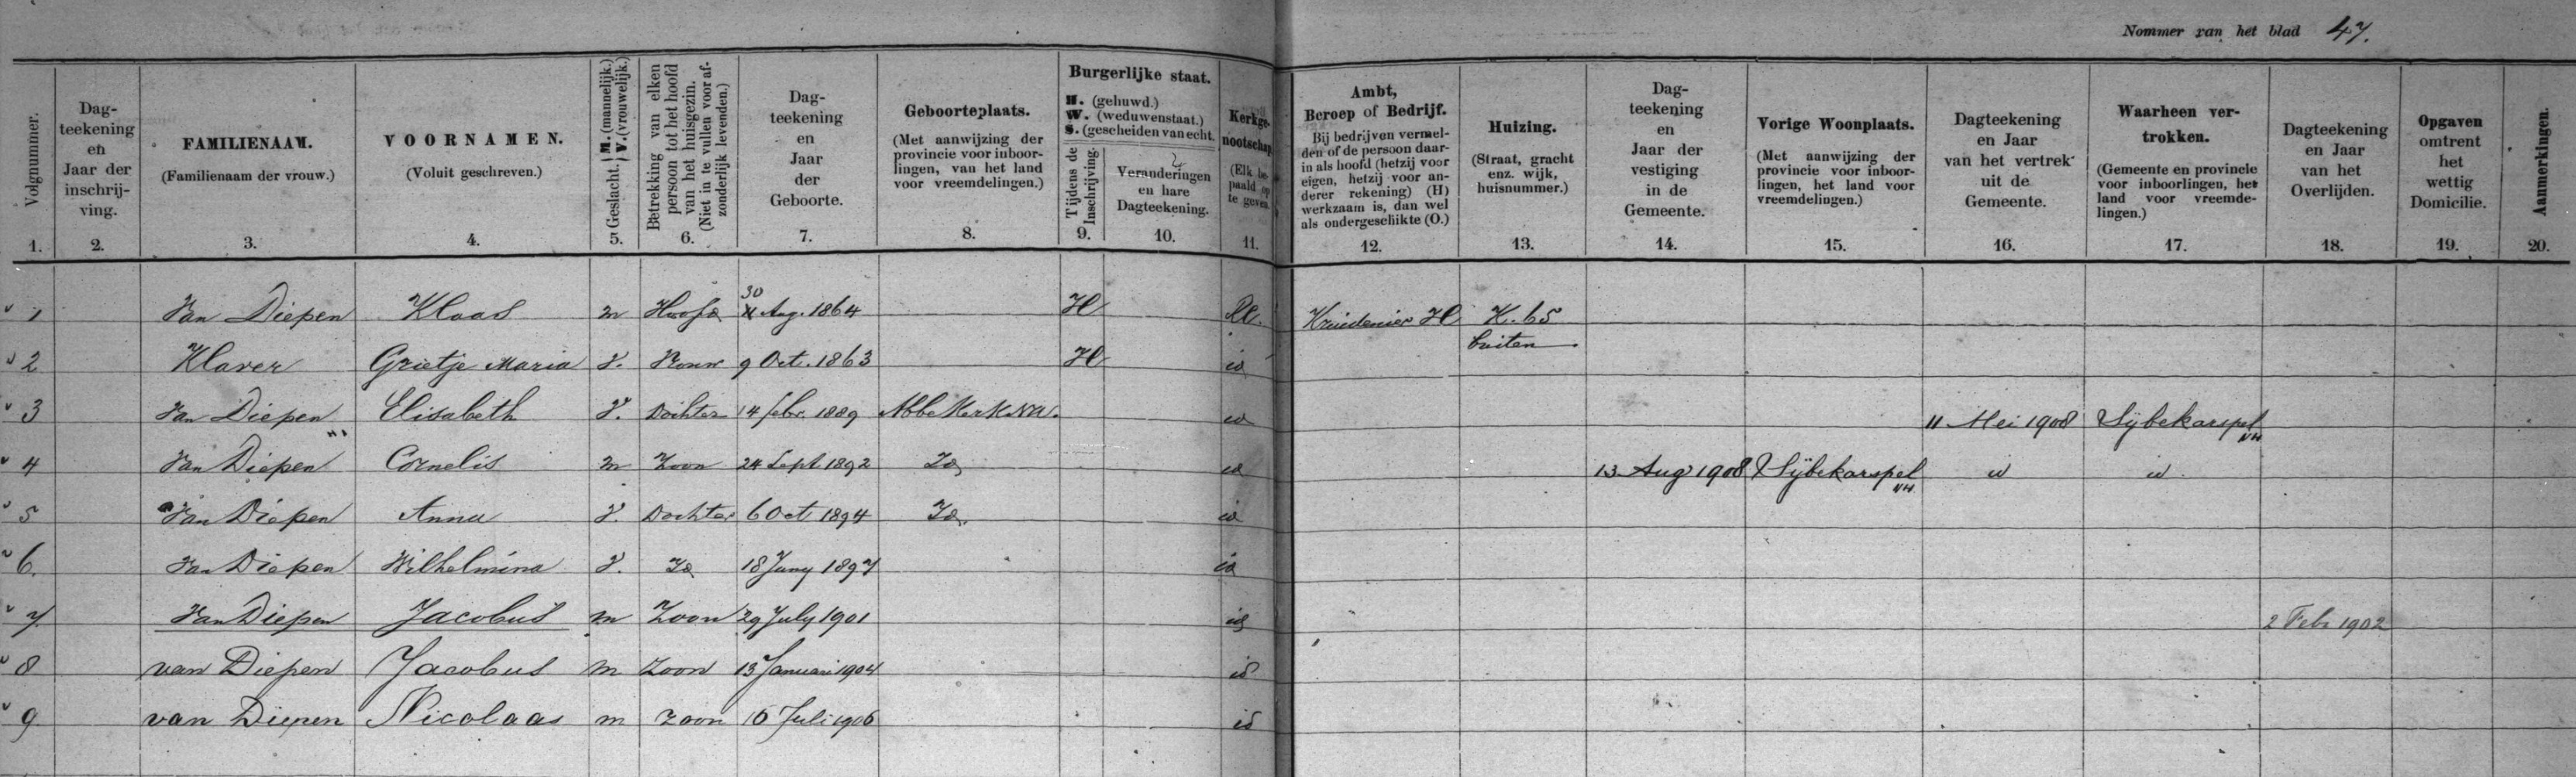 Nommer van het blad 47.
Volgnummer.
1.
Dag-
teekening
en
Jaar der
inschrij-
ving.
2.
FAMILIENAAM.
(Familienaam der vrouw.)
3.
VOORNAMEN.
(Voluit geschreven.)
4.
Geslacht. { M. (mannelijk.)
V. (vrouwelijk.)
5.
Betrekking van elken
persoon tot het hoofd
van het huisgezin.
(Niet in te vullen voor af-
zonderlijk levenden.)
6.
Dag-
teekening
en
Jaar
der
Geboorte.
7.
Geboorteplaats.
(Met aanwijzing der
provincie voor inboor-
lingen, van het land
voor vreemdelingen.)
8.
Burgerlijke staat.
H. (gehuwd.)
W. (weduwenstaat.)
S. (gescheiden van echt.)
Tijdens de
Inschrijving.
9.
Veranderingen
en hare
Dagteekening.
10.
Kerkge-
nootschap
(Elk be-
paald op
te geven.
11.
Ambt,
Beroep of Bedrijf.
Bij bedrijven vermel-
den of de persoon daar-
in als hoofd (hetzij voor
eigen, hetzij voor an-
derer rekening) (H)
werkzaam is, dan wel
als ondergeschikte (O.)
12.
Huizing.
(Straat, gracht
enz. wijk,
huisnummer.)
13.
Dag-
teekening
en
Jaar der
vestiging
in de
Gemeente.
14.
Vorige Woonplaats.
(Met aanwijzing der
provincie voor inboor-
lingen, het land voor
vreemdelingen.)
15.
Dagteekening
en Jaar
van het vertrek
uit de
Gemeente.
16.
Waarheen ver-
trokken.
(Gemeente en provincie
voor inboorlingen, het
land voor vreemde-
lingen.)
17.
Dagteekening
en Jaar
van het
Overlijden.
18.
Opgaven
omtrent
het
wettig
Domicilie.
19.
Aanmerkingen.
20.
1 Van Diepen Klaas m Hoofd 30 Aug. 1864 H RC. Kruidenier H K. 65
buiten
2 Klaver Grietje Maria V. Vrouw 9 Oct. 1863 H id
3 Van Diepen Elisabeth V. Dochter 14 febr. 1889 Abbekerk NH. id 11 Mei 1908 Sijbekarspel NH
4 Van Diepen Cornelis m Zoon 24 Sept 1892 Id id 13 Aug 1908 Sijbekarspel NH id id
5 Van Diepen Anna V. Dochter 6 Oct 1894 Id. id
6. Van Diepen Wilhelmina V. Id 18 Juny 1897 id
7 Van Diepen Jacobus m Zoon 29 July 1901 id 2 Feb 1902
8 van Diepen Jacobus m Zoon 13 Januari 1904 id
9 van Diepen Nicolaas m Zoon 16 Juli 1906 id